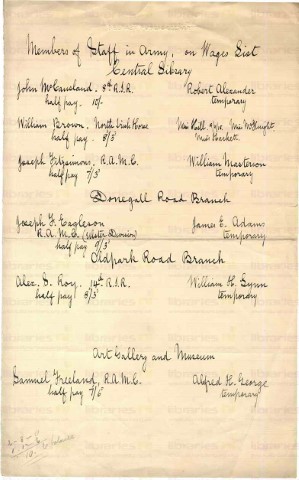 Members of Staff in Army, on Wages List
Central Library
John McCausland. 8th R.I.R. Robert Alexander
half pay. 10/- temporary
William Brown. North Irish Horse Miss Hall. Miss McKnight
half pay. 8/3
Joseph Fitzsimons. R.A.M.C. William Masterson
half pay 7/3 temporary
Donegall Road Branch
Joseph F. Eagleson James E. Adams
R.A.M.C. (Ulster Division) temporary
half pay 9/3
Oldpark Road Branch
Alex. G. Roy. 14th R.I.R. William H. Lynn
half pay 8/3 temporary
Art Gallery and Museum
Samuel Freeland, R.A.M.C. Alfred H. George
half pay 7/6 temporary